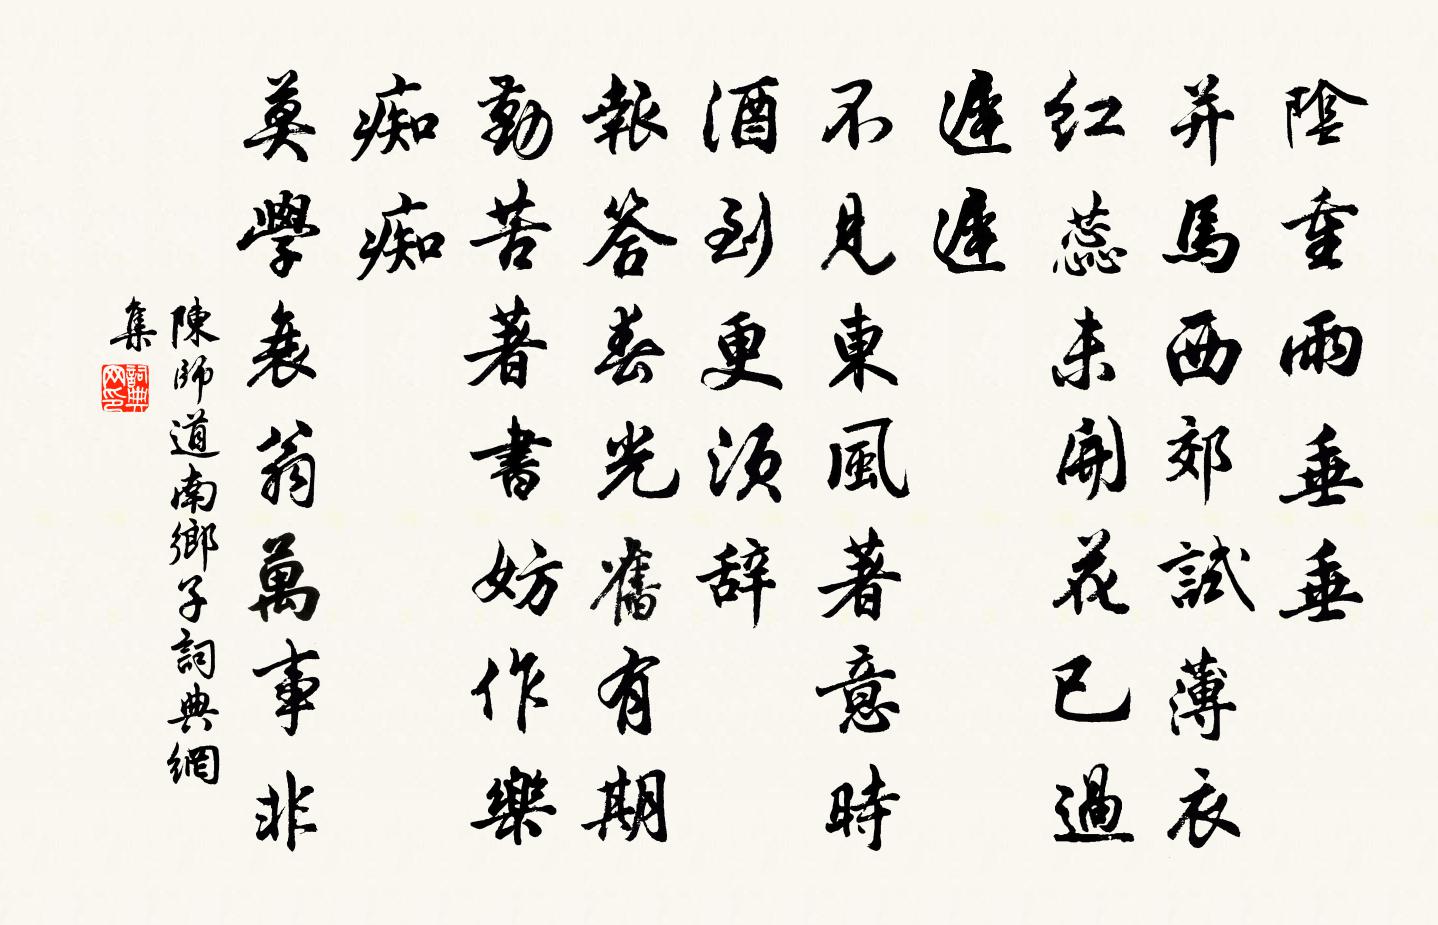 陰重雨垂垂
并馬西郊試薄衣
紅蕊未開花已過
遲遲
不見東風著意時
酒到更須辞
報答春光舊有期
勤苦著書妨作樂
痴痴
莫學衰翁萬事非
陳師道南鄉子詞典網
集
詞典网印